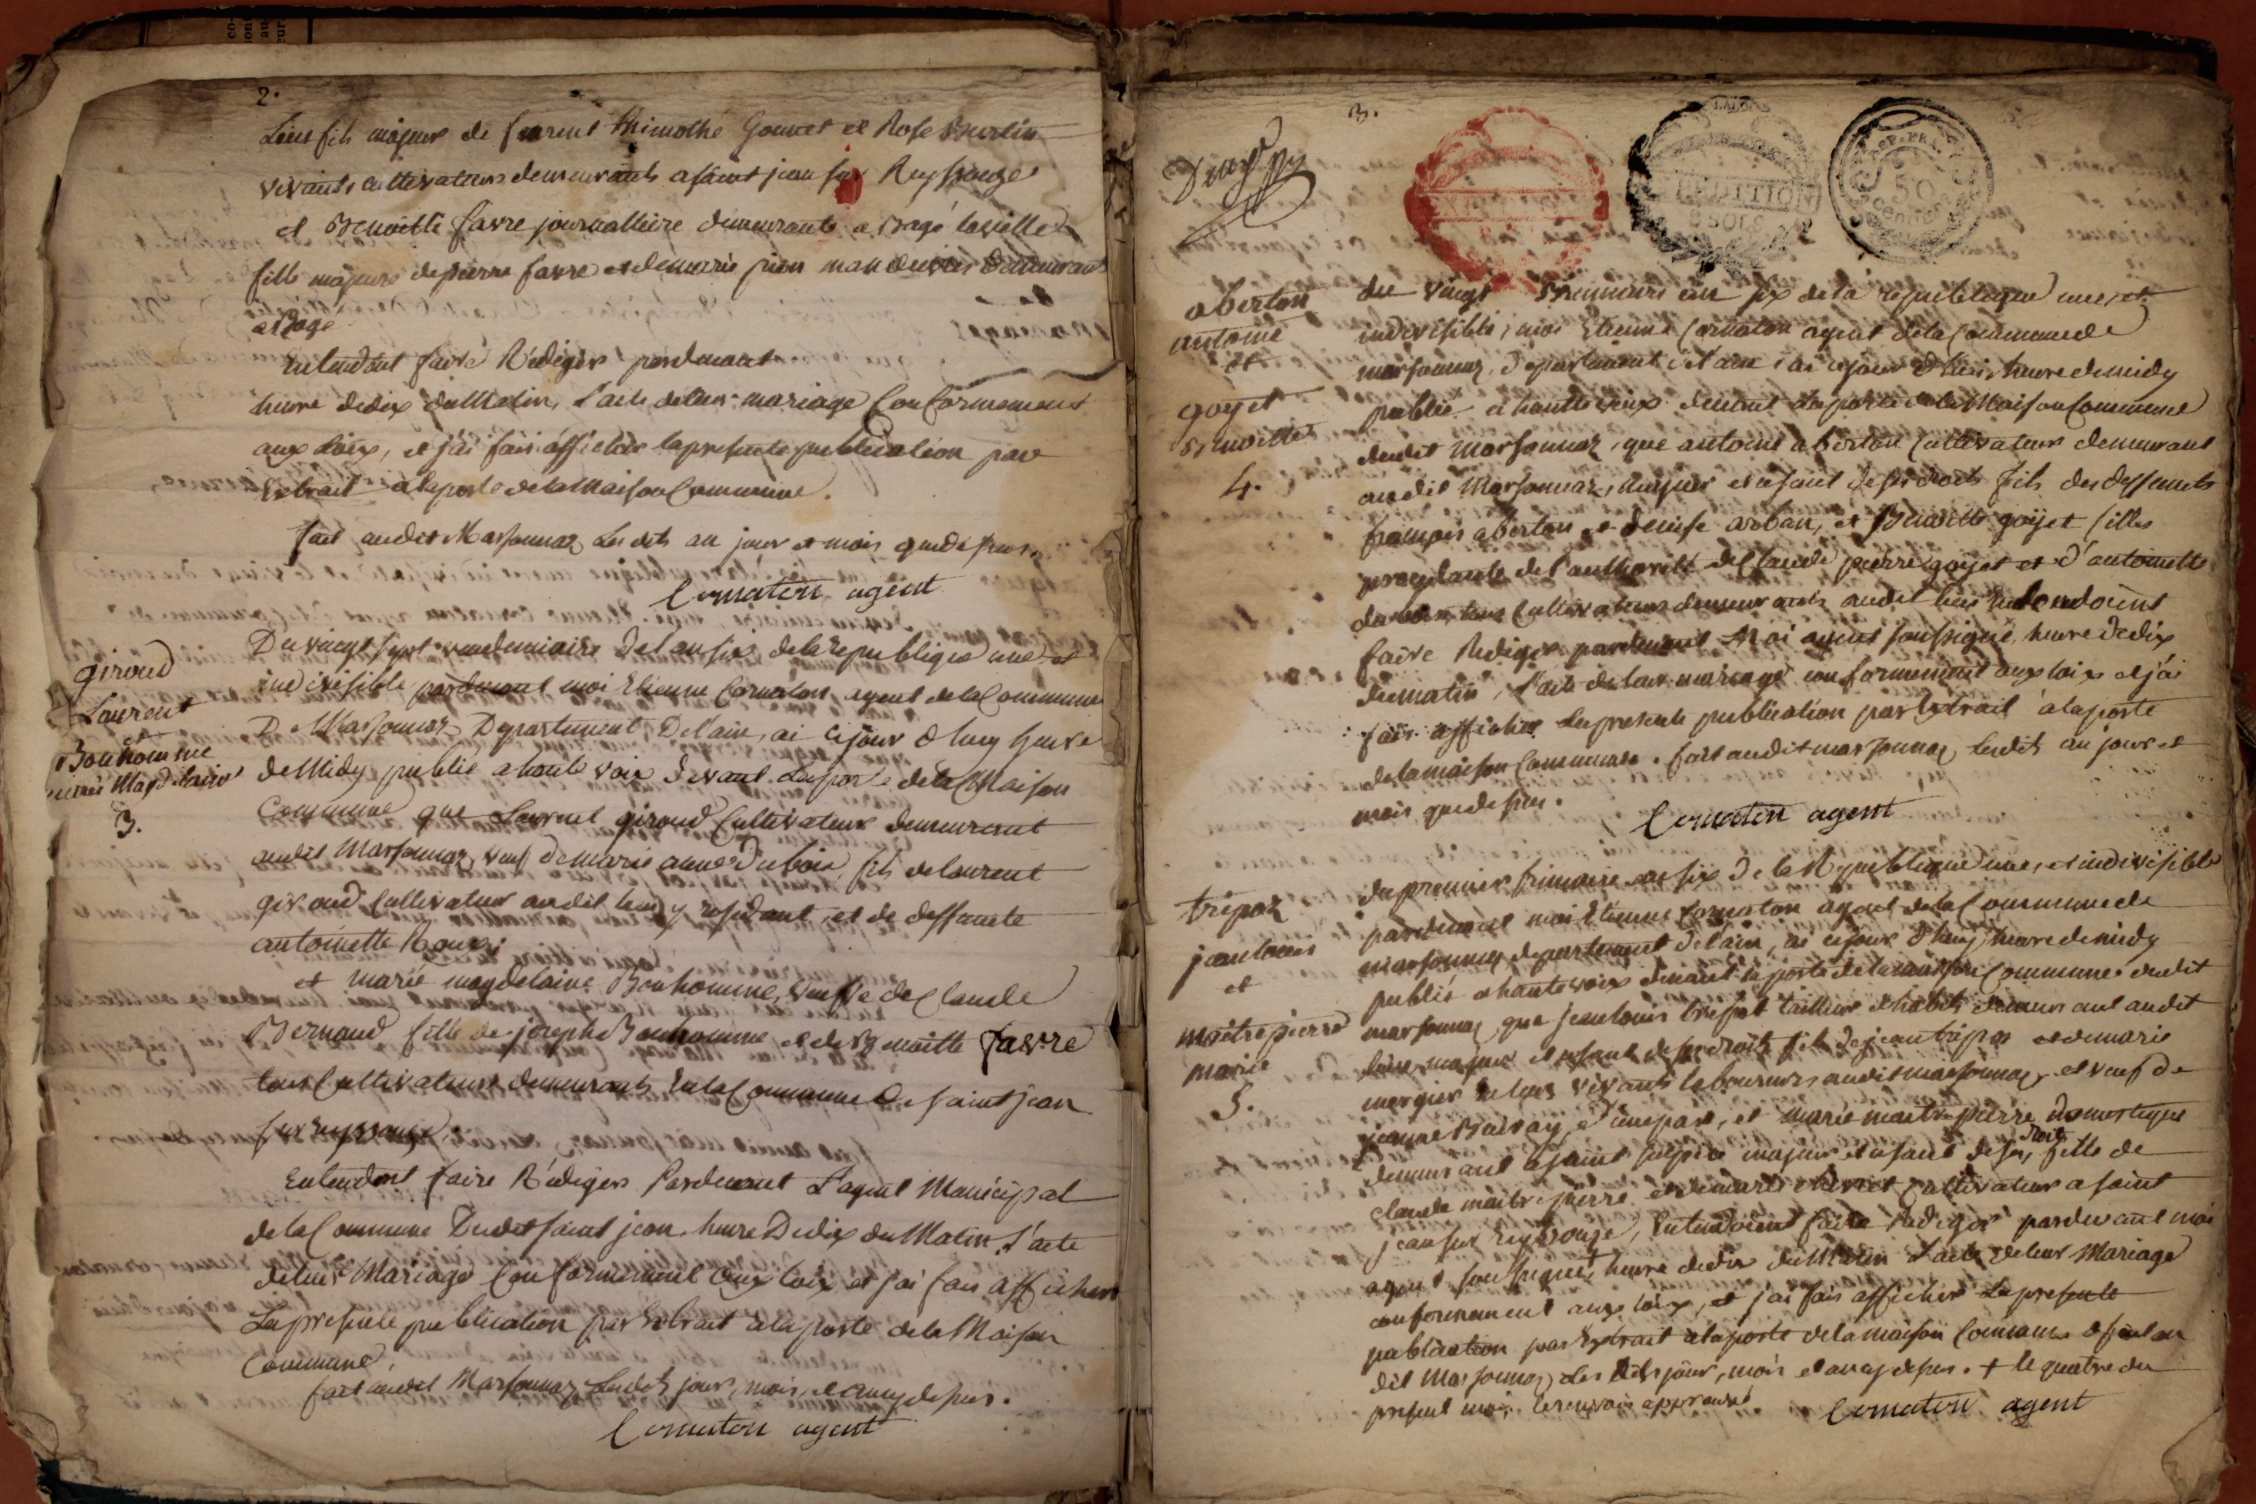 2.
Lieu fils majeur de Laurent thimothé Gouvet et Rose
vivants cultivateurs demeurants a saint jean sur Reyssouze
et Benoitte favre journalliere demeurante a Bagé laville
fille majeure de pierre favre et de marie pion demeurants
a Bagé
Entendent faire Rédiger pardevant
heure dedix du Matin, l'acte deleur mariage Conformement
aux Loix, et j'ai fais afficher la presente publication par
Extrait a la porte de la Maison Commune.
fait audit Marsonnaz Les dits an jour et mois que dessus.
Cornaton agent
giroud
Laurent
et
Bonhomme
marie Magdelaine
3.
Du vingt sept vendemiaire De l an six de la republique une et
indivisible, pardevant moi Etienne Cornaton agent de la Commune
De Marsonnaz Departement De l'ain, ai cejour d'huy heure
de Midy publié a haute voix devant la porte de la Maison
Commune que Laurent giroud Cultivateur demeurant
audit Marsonnaz, veuf de marie anne Dubois, fils de laurent
giroud Cultivateur audit lieu y residant, et de deffunte
antoinette Roux;
et marie magdelaine Bonhomme, veufve de Claude
Bernaud fille de joseph Bonhomme et de Benoitte favre
tous Cultivateurs demeurants En la Commune De saint jean
sur reyssouze,
Entendent faire Rédiger Pardevant L'agent Municipal
de la Commune Dudit saint jean, heure Dedix du Matin, l'acte
deleur Mariage Conformement aux loix et j'ai fais afficher
La presente publication par Extrait a la porte de la Maison
Commune,
fait audit Marsonnaz Lesdits jour, mois, et an que dessus.
Cornaton agent
3.
EXPEDITION
8 SOLS
50
CENTIMES
aberton
antoine
et
goyet
Benoitte
4.
du vingt Brumaire an six de la republique une, et
indivisible, moi Etienne Cornaton agent de la Commune de
marsonnaz, Departement de l'ain, ai cejour d'hui, heure de midy
publié a haute voix devant la porte de la Maison Commune
dudit Marsonnaz, que antoine aberton Cultivateur demeurant
audit Marsonnaz, majeur et usant de ses droits fils des deffunts
françois aberton et denise arban, et Benoitte goyet fille
procedante de l'authorité de Claude pierre goyet et d'antoinette
tous Cultivateurs demeurants audit lieu Entendoient
faire Rediger pardevant Moi agent soussigné, heure dedix
du matin, l'acte de leur mariage conformement aux loix et j'ai
fais afficher La presente publication par Extrait a la porte
de la maison Commune. fait audit marsonnaz Lesdits an jour et
mois que dessus.
Cornaton agent
trépoz
jean louis
et
maitrepierre
marie
5.
du premier frimaire an six De la Republique une, et indivisible
pardevant moi Etienne Cornaton agent de la Commune de
marsonnaz departement de l'ain, ai cejour d'huy, heure de midy
publié a haute voix devant la porte de la maison Commune dudit
marsonnaz, que jean louis trépoz tailleur d'habits demeurant audit
lieu, majeur et usant de ses droits fils de jean trépoz et de marie
mergier vivants laboureurs audit marsonnaz, et veuf de
jeanne d'une part, et marie maitrepierre domestique
demeurant a saint sulpice majeure et usant de ses droits fille de
claude maitrepierre et de marie cultivateur a saint
jean sur reyssouze, Entendoient faire Rediger pardevant moi
agent soussigné, heure dedix du Matin L'acte de leur Mariage
conformement aux loix, et j'ai fais afficher La presente
publication par Extrait a la porte de la maison Commune fait au
dit Marsonnaz, les dits jour, mois et an que dessus. + le quatre du
present mois Le renvois approuvé.
Cornaton agent